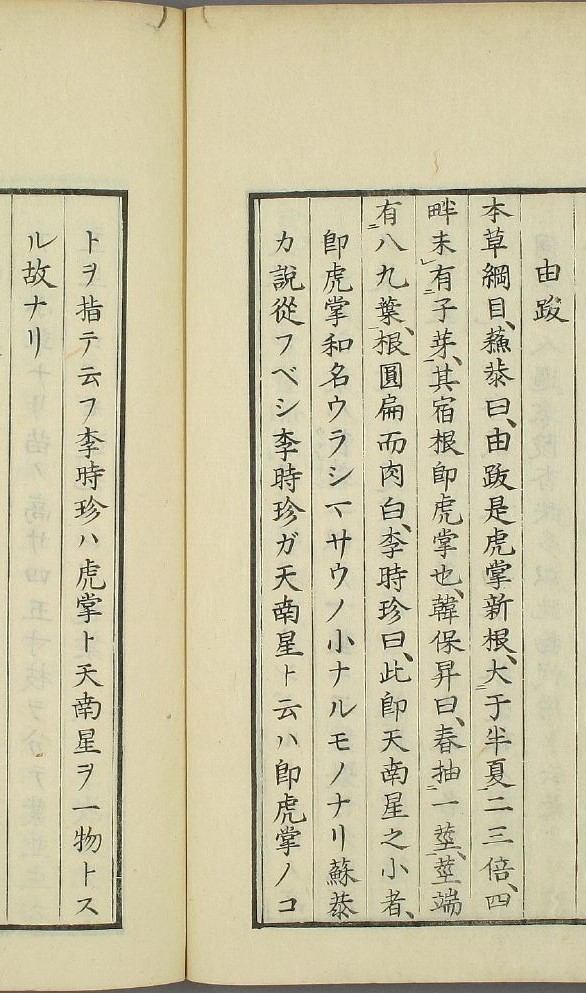 由跋
本草綱目、蘓恭曰、由跋是虎掌新根、大于半夏二三倍、四
畔未有子芽、其宿根即虎掌也、韓保昇曰、春抽一莖、莖端
有八九葉、根圓扁而肉白、李時珍曰、此即天南星之小者、
即虎掌和名ウラシマサウノ小ナルモノナリ蘇恭
カ說從フベシ李時珍ガ天南星ト云ハ即虎掌ノコ
トヲ指テ云フ李時珍ハ虎掌ト天南星ヲ一物トス
ル故ナリ